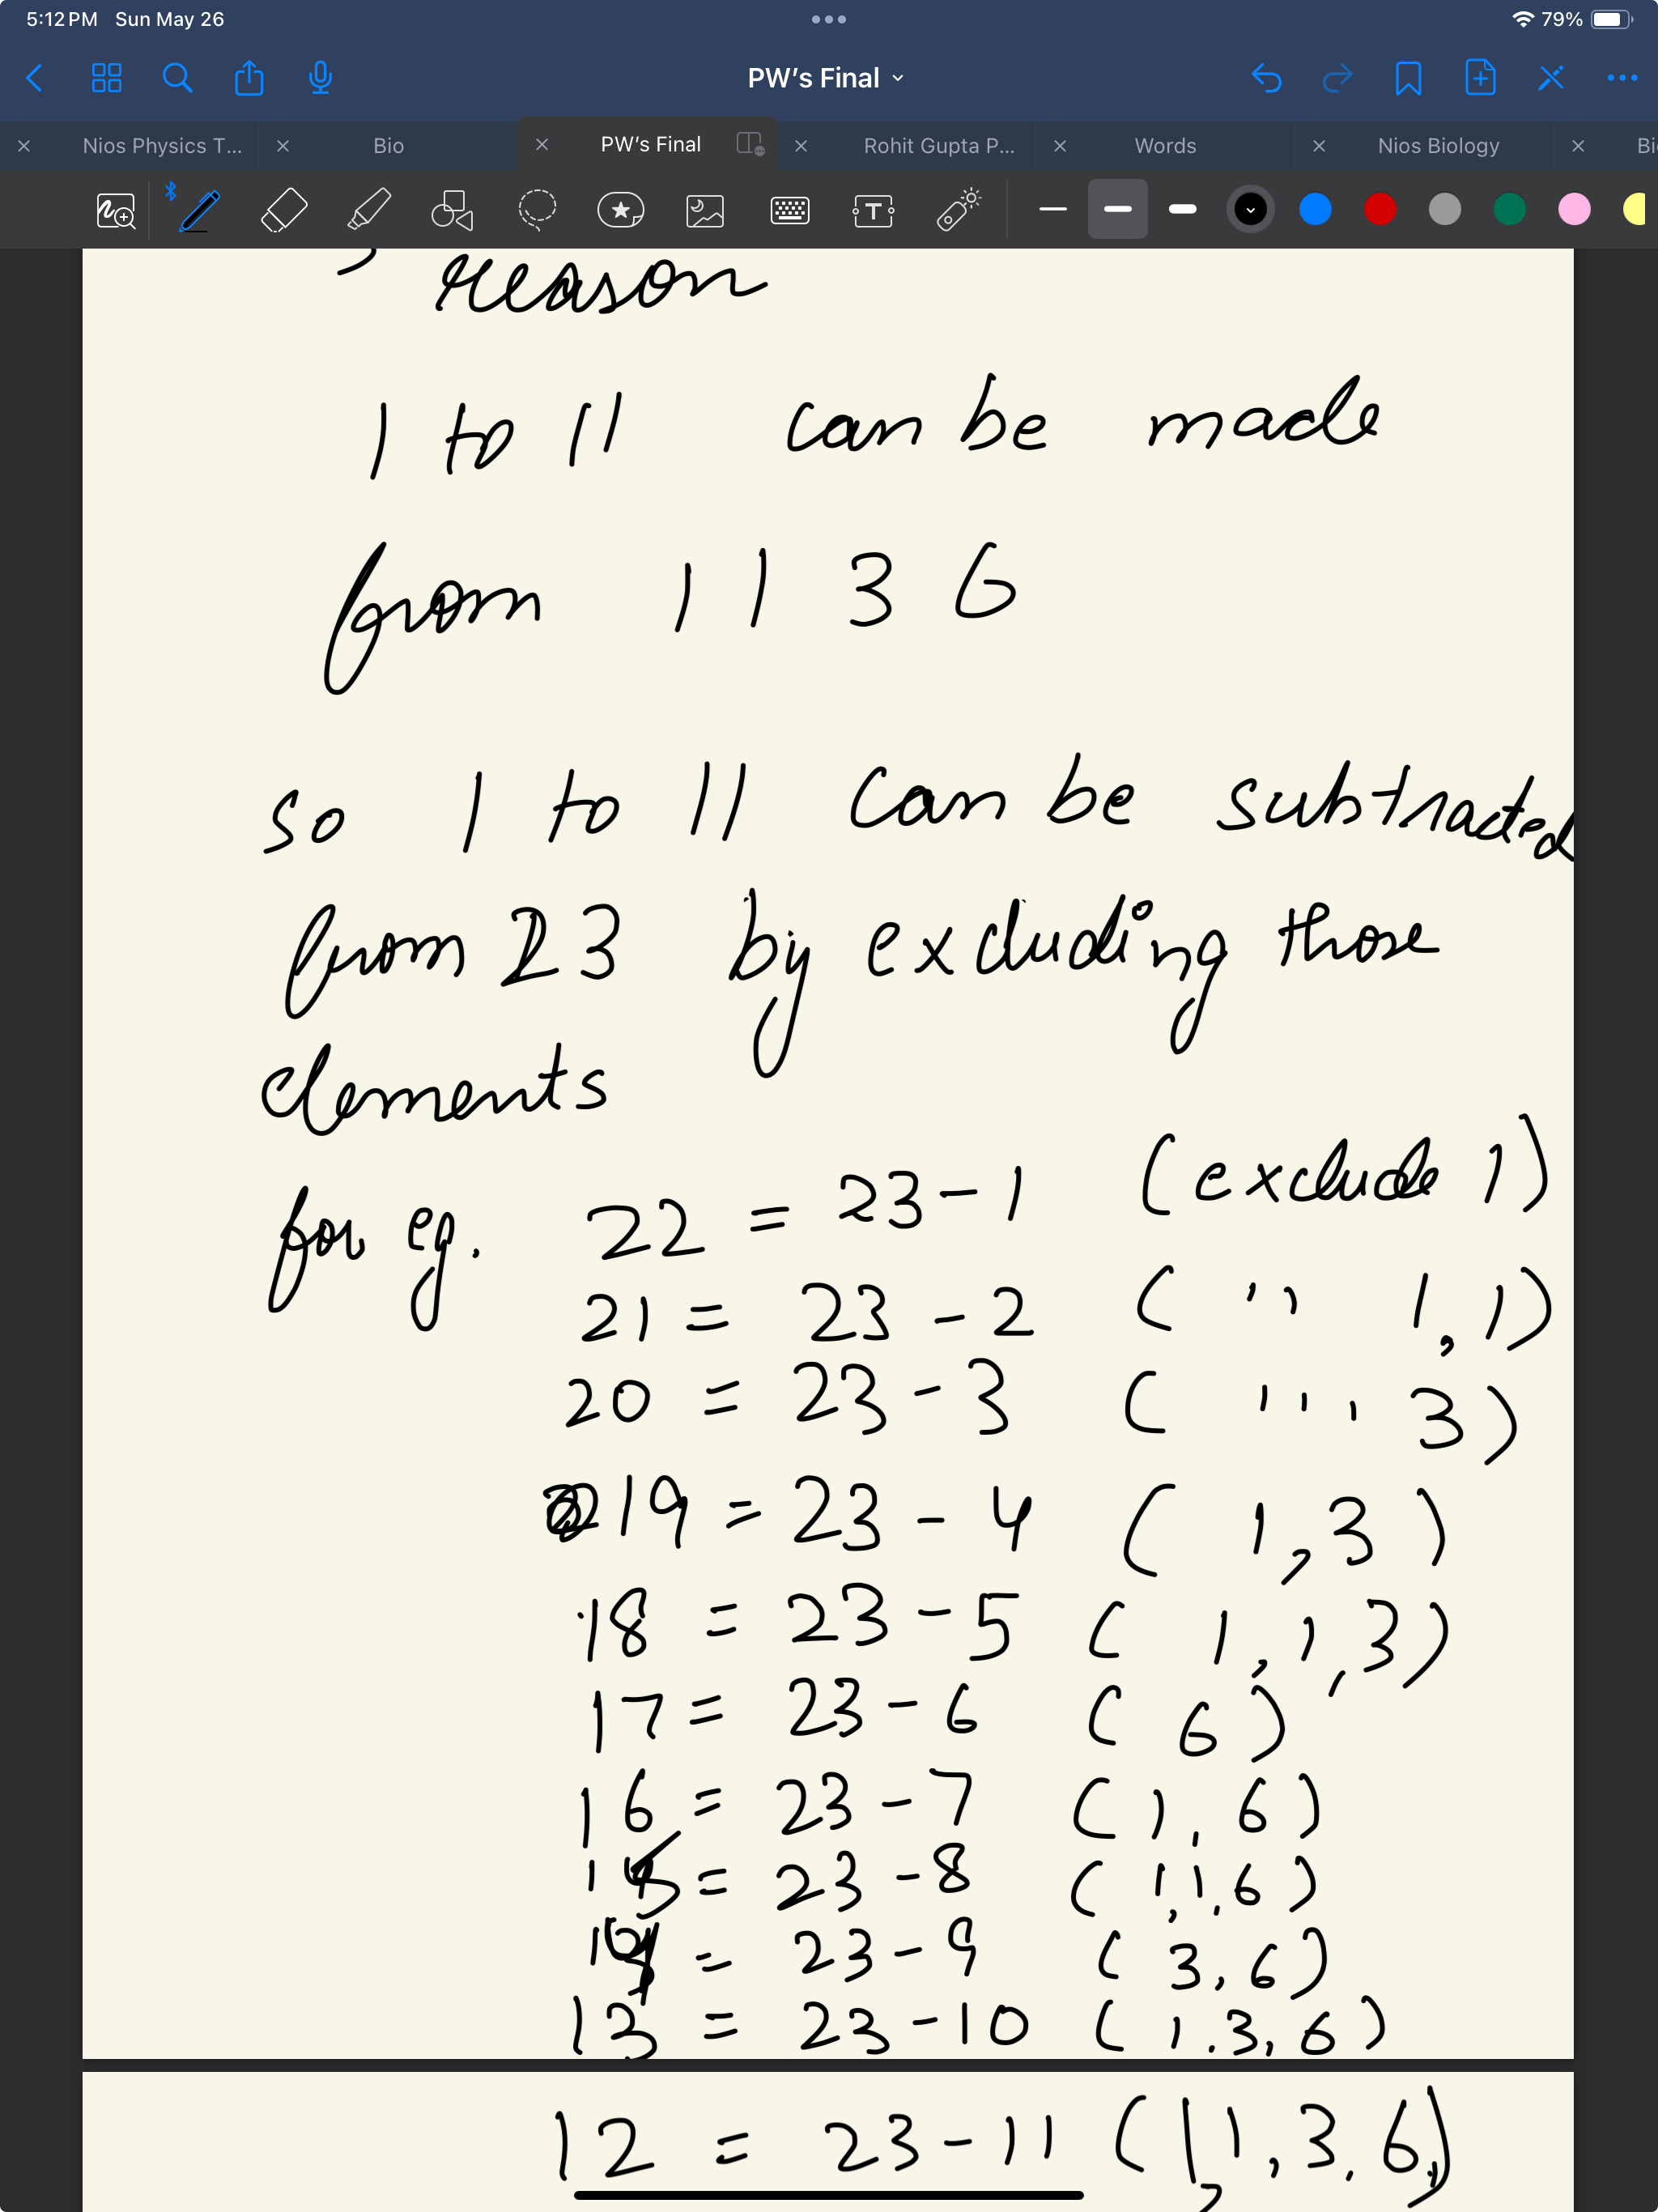 5:12 PM Sun May 26
79%
PW's Final
Nios Physics T...
Bio
PW's Final
Rohit Gupta P...
Words
Nios Biology
Bi
reason
1 to 11 can be made
from 1 1 3 6
so 1 to 11 can be subtracted
from 23 by excluding those
elements
for eg. 22 = 23-1 (exclude 1)
21 = 23-2 ( " 1,1)
20 = 23-3 ( ''' 3)
19 = 23-4 ( 1,3 )
18 = 23-5 ( 1,1,3)
17 = 23-6 ( 6 )
16 = 23-7 (1, 6)
15 = 23-8 ( 1,1,6)
14 = 23-9 ( 3,6)
13 = 23-10 ( 1,3,6)
12 = 23-11 (1,1,3,6)